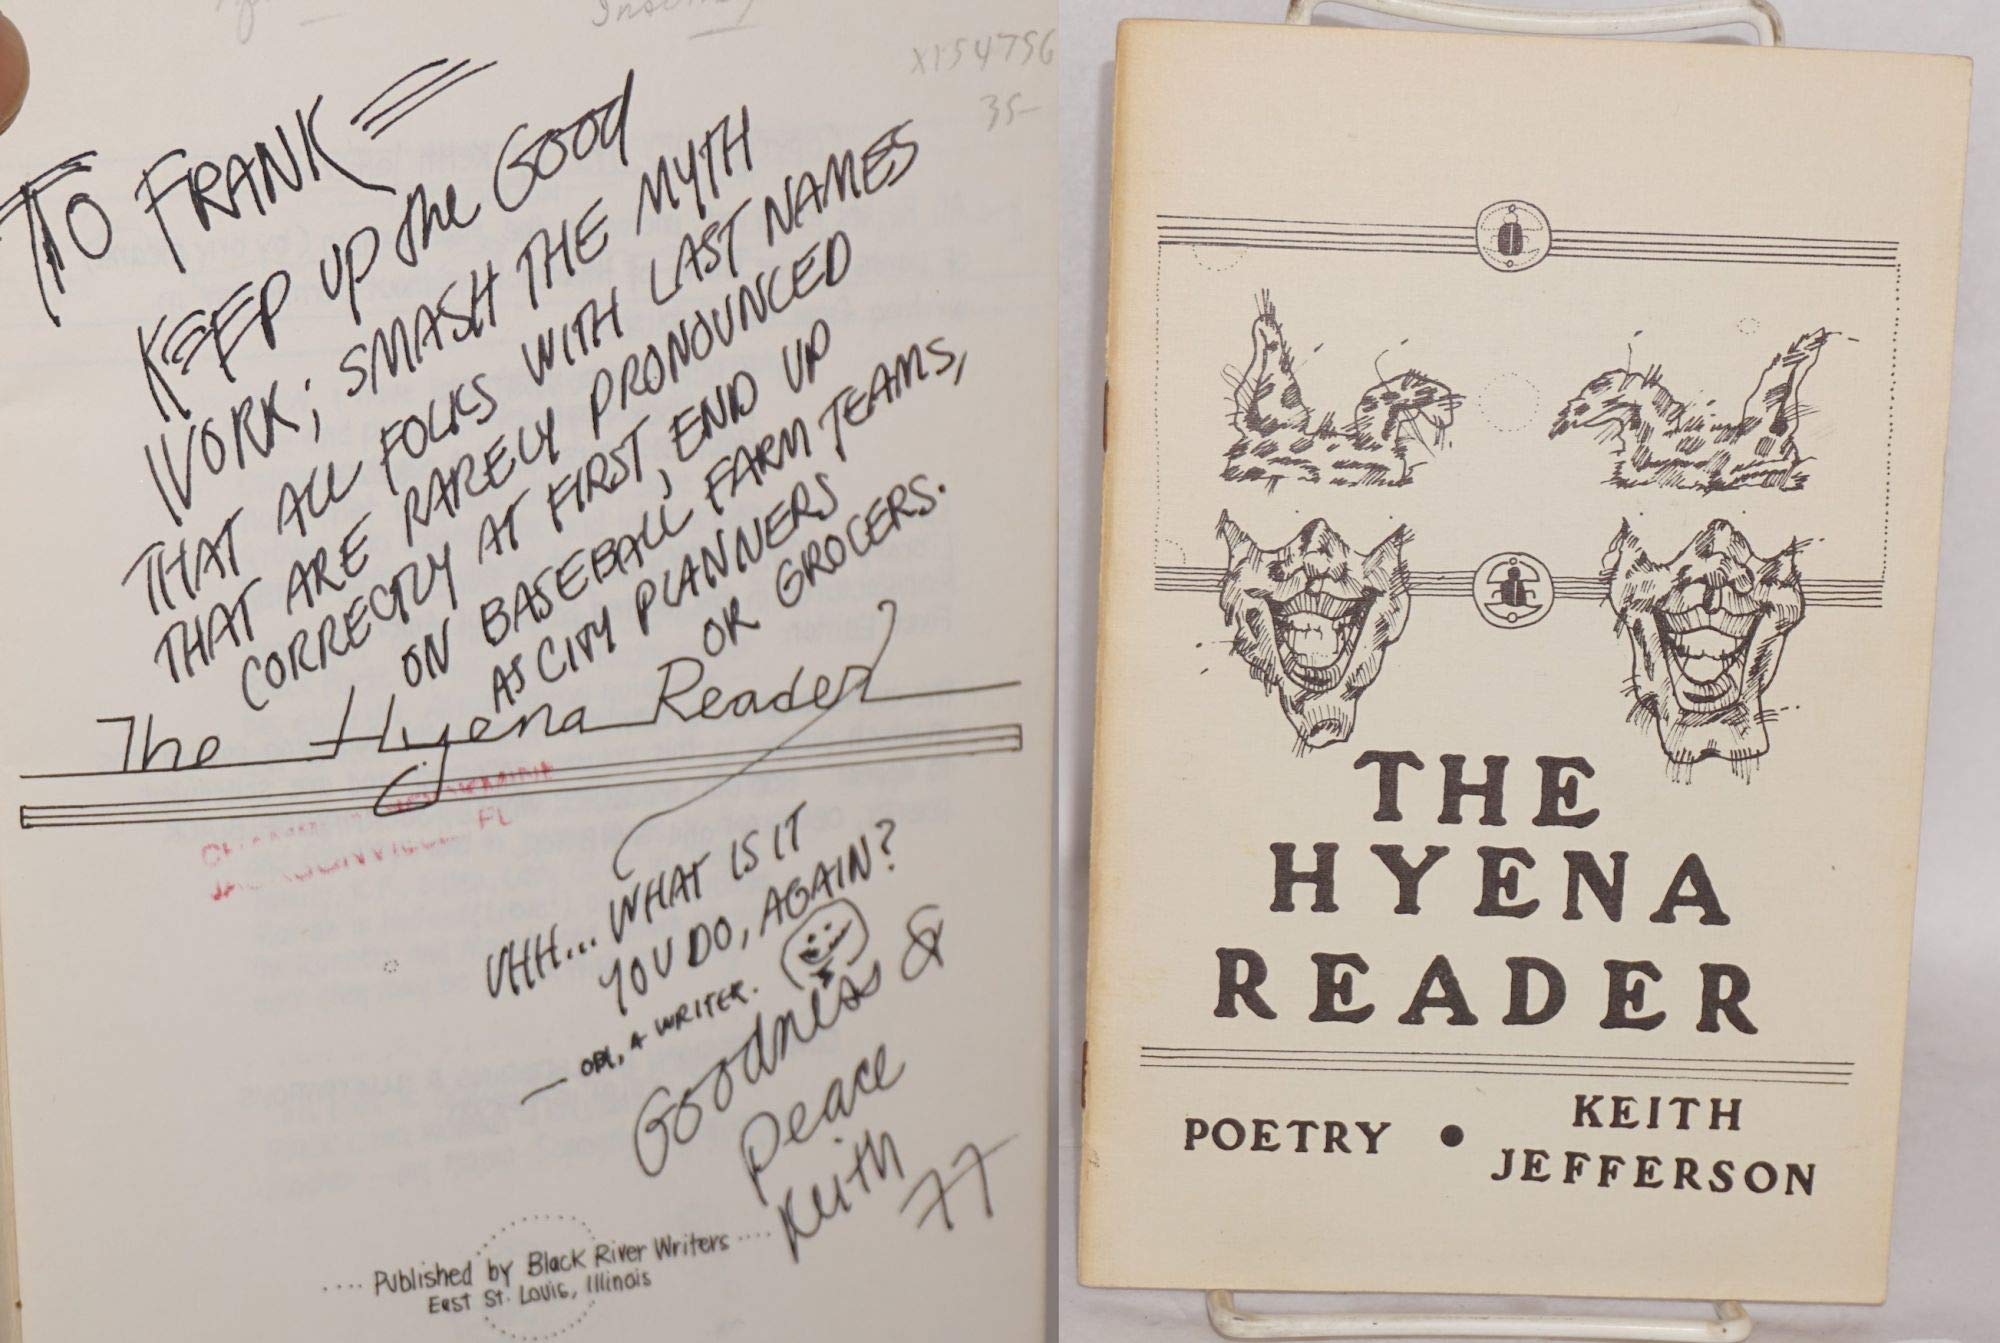 X154756
35-
TO FRANK
KEEP UP the GOOD
WORK; SMASH THE MYTH
THAT ALL FOLKS WITH LAST NAMES
THAT ARE RARELY PRONOUNCED
CORRECTLY AT FIRST, END UP
ON BASEBALL FARM TEAMS,
AS CITY PLANNERS
OR GROCERS.
The Hyena Reader
JACKSONVILLE FL
UHH... WHAT IS IT
YOU DO, AGAIN?
— OH, A WRITER.
Goodness &
Peace
Keith
77
.... Published by Black River Writers ....
East St. Louis, Illinois
THE
HYENA
READER
POETRY • KEITH
JEFFERSON